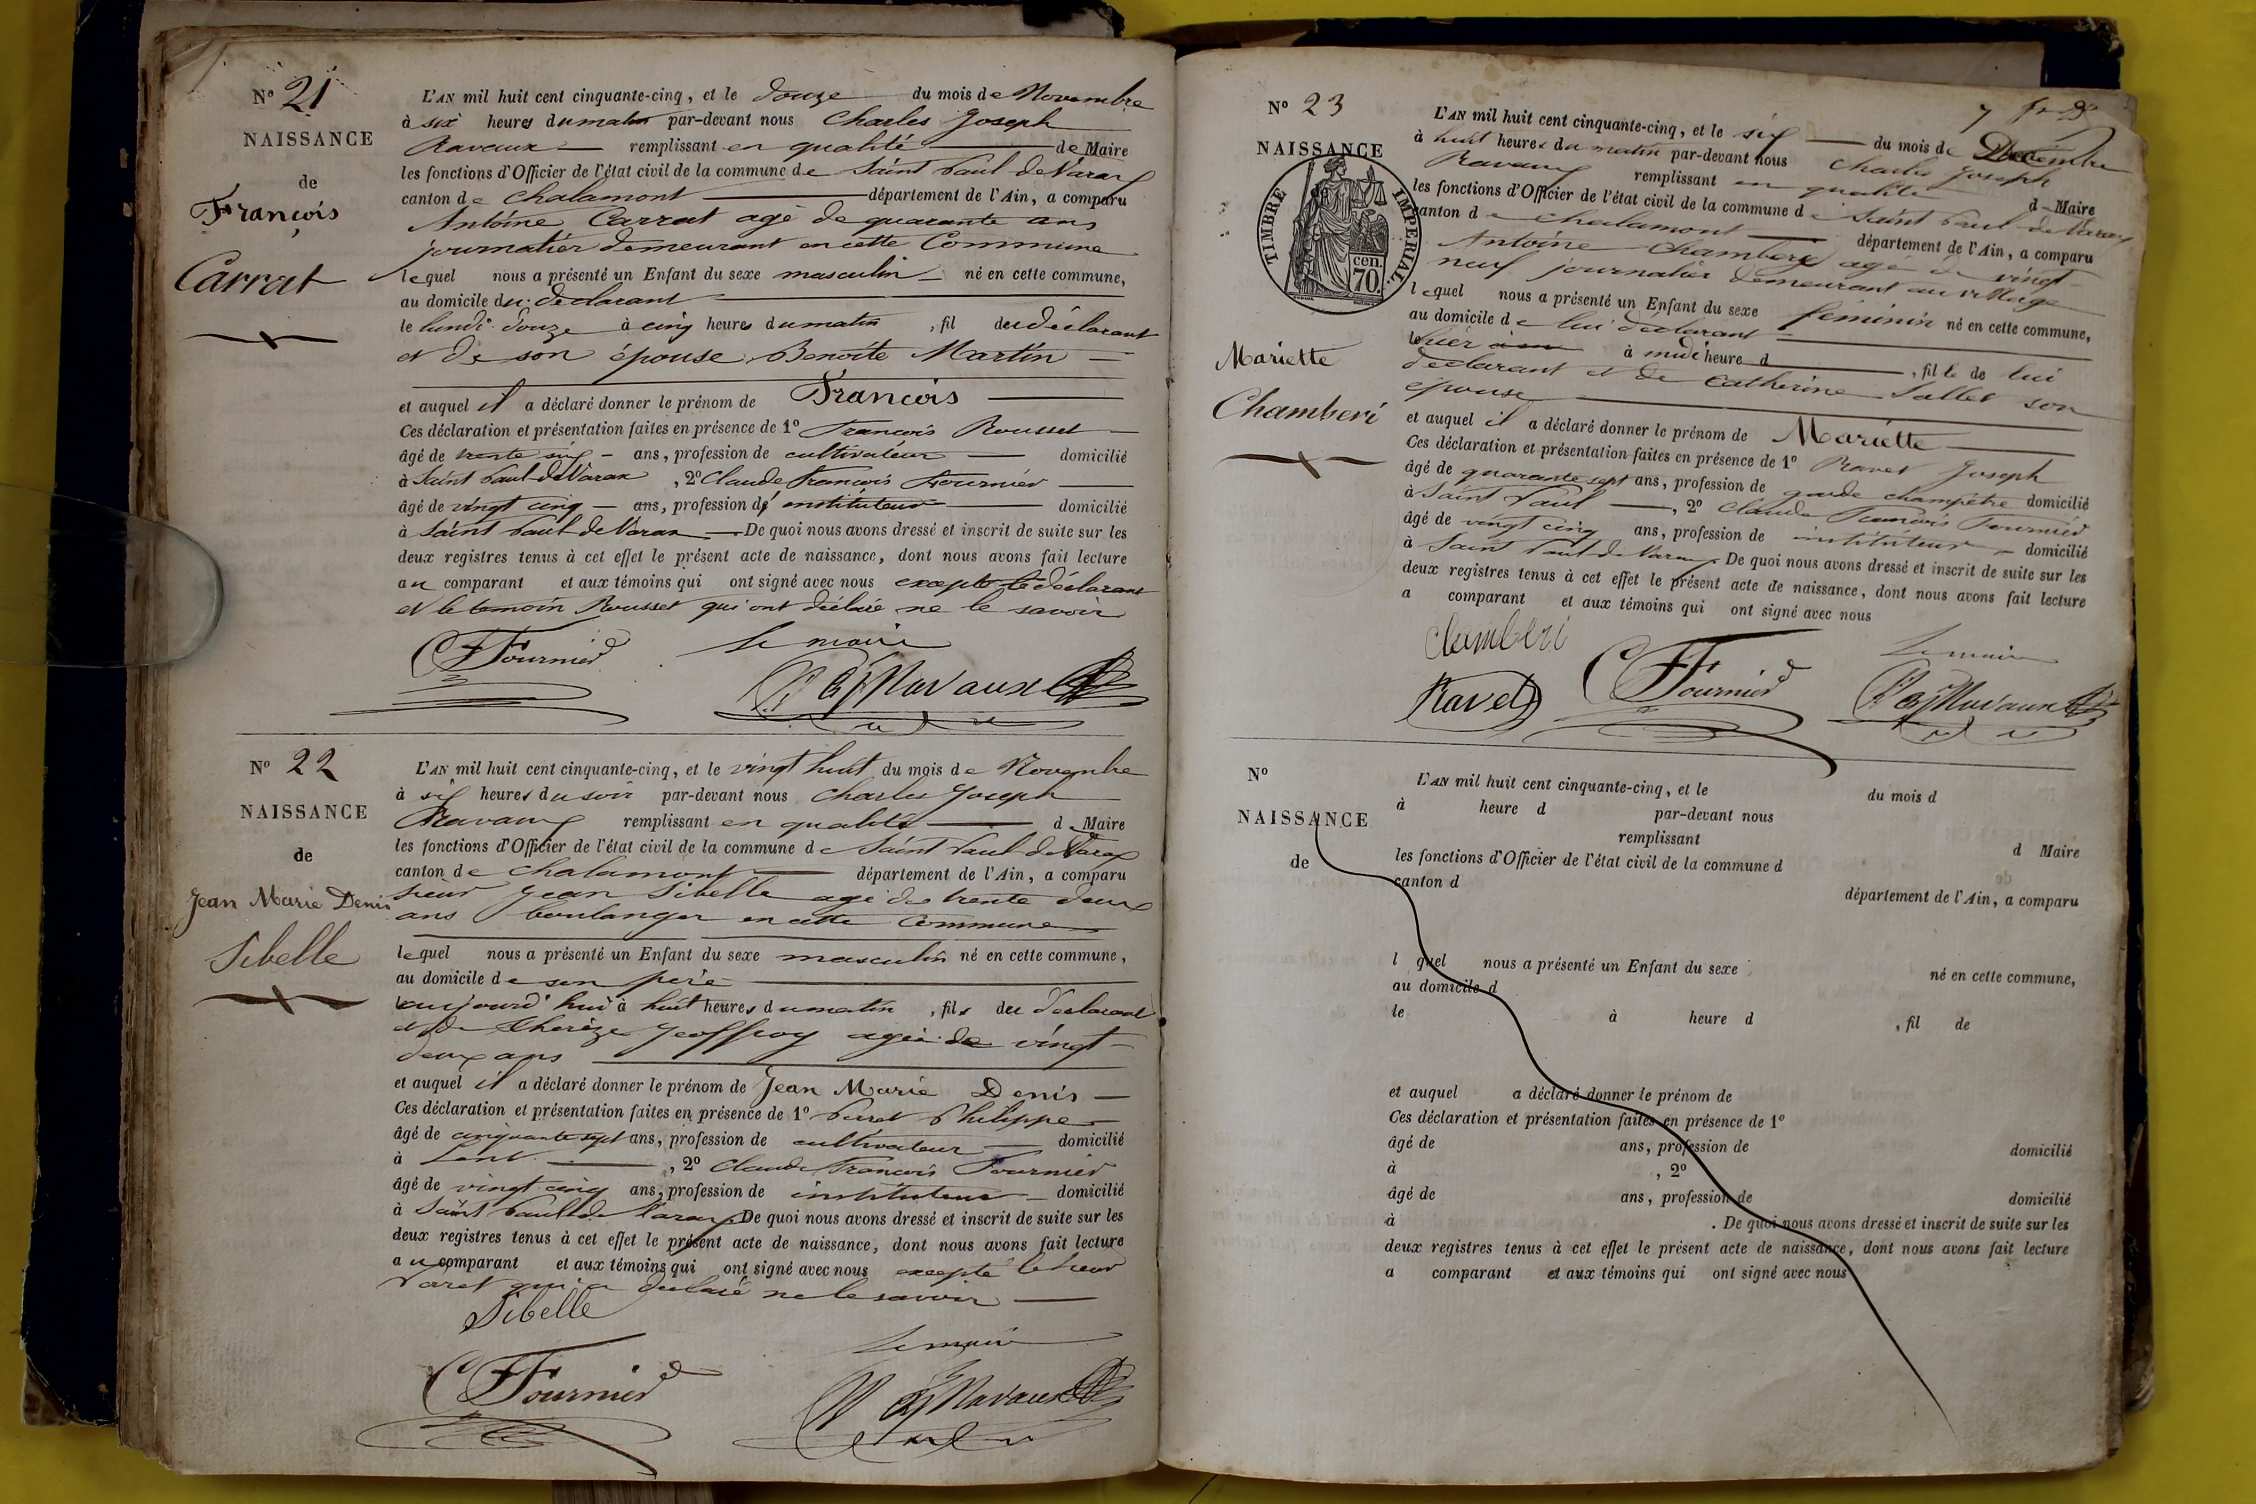 N° 21
NAISSANCE
de
François
Carrat
L'AN mil huit cent cinquante-cinq, et le douze du mois de Novembre
à six heures du matin par-devant nous Charles Joseph
Ravaux remplissant en qualité de Maire
les fonctions d'Officier de l'état civil de la commune de Saint Paul de Varax
canton de Chalamont département de l'Ain, a comparu
Antoine Carrat agé de quarante ans
journalier demeurant en cette Commune
lequel nous a présenté un Enfant du sexe masculin né en cette commune,
au domicile du déclarant
le lundi douze à cinq heures du matin, fil du déclarant
et de son épouse Benoite Martin
et auquel il a déclaré donner le prénom de François
Ces déclaration et présentation faites en présence de 1° François Rousset
âgé de trente six ans, profession de cultivateur domicilié
à Saint Paul de Varax, 2° Claude François Fournier
âgé de vingt cinq ans, profession d' instituteur domicilié
à Saint Paul de Varax De quoi nous avons dressé et inscrit de suite sur les
deux registres tenus à cet effet le présent acte de naissance, dont nous avons fait lecture
au comparant et aux témoins qui ont signé avec nous excepté le déclarant
et le temoin Rousset qui ont déclaré ne le savoir
CF Fournier
Le maire
Ravaux
N° 22
NAISSANCE
de
Jean Marie Denis
Sibelle
L'AN mil huit cent cinquante-cinq, et le vingt huit du mois de Novembre
à six heures du soir par-devant nous Charles Joseph
Ravaux remplissant en qualité d Maire
les fonctions d'Officier de l'état civil de la commune de Saint Paul de Varax
canton de Chalamont département de l'Ain, a comparu
sieur Jean Sibelle agé de trente deux
ans boulanger en cette Commune
lequel nous a présenté un Enfant du sexe masculin né en cette commune,
au domicile de son père
aujourd'hui à huit heures du matin, fils du déclarant
et de Thérèze Geoffroy agée de vingt
deux ans
et auquel il a déclaré donner le prénom de Jean Marie Denis
Ces déclaration et présentation faites en présence de 1° Philippe
âgé de cinquante sept ans, profession de cultivateur domicilié
à Lent, 2° Claude François Fournier
âgé de vingt cinq ans, profession de instituteur domicilié
à Saint Paul de Varax De quoi nous avons dressé et inscrit de suite sur les
deux registres tenus à cet effet le présent acte de naissance, dont nous avons fait lecture
au comparant et aux témoins qui ont signé avec nous excepté le sieur
qui a déclaré ne le savoir
Sibelle
CF Fournier
Le maire
Ravaux
N° 23
NAISSANCE
de
TIMBRE IMPERIAL
cen.
70
Mariette
Chamberi
L'AN mil huit cent cinquante-cinq, et le six du mois de Décembre
à huit heures du matin par-devant nous Charles Joseph
Ravaux remplissant en qualité d Maire
les fonctions d'Officier de l'état civil de la commune de Saint Paul de Varax
canton de Chalamont département de l'Ain, a comparu
Antoine Chambery agé de vingt
neuf journalier demeurant au village
lequel nous a présenté un Enfant du sexe féminin né en cette commune,
au domicile de lui déclarant
hier à midi heure d, fille de lui
déclarant et de Catherine Sallet son
épouse
et auquel il a déclaré donner le prénom de Mariette
Ces déclaration et présentation faites en présence de 1° Ravet Joseph
âgé de quarante sept ans, profession de garde champêtre domicilié
à Saint Paul, 2° Claude François Fournier
âgé de vingt cinq ans, profession de instituteur domicilié
à Saint Paul de Varax De quoi nous avons dressé et inscrit de suite sur les
deux registres tenus à cet effet le présent acte de naissance, dont nous avons fait lecture
a comparant et aux témoins qui ont signé avec nous
Chamberi
Le maire
Ravet
CF Fournier
Ravaux
N°
NAISSANCE
de
L'AN mil huit cent cinquante-cinq, et le du mois d
à heure d par-devant nous
remplissant d Maire
les fonctions d'Officier de l'état civil de la commune d
canton d département de l'Ain, a comparu
l quel nous a présenté un Enfant du sexe né en cette commune,
au domicile d
le à heure d, fil de
et auquel a déclaré donner le prénom de
Ces déclaration et présentation faites en présence de 1°
âgé de ans, profession de domicilié
à , 2°
âgé de ans, profession de domicilié
à . De quoi nous avons dressé et inscrit de suite sur les
deux registres tenus à cet effet le présent acte de naissance, dont nous avons fait lecture
a comparant et aux témoins qui ont signé avec nous